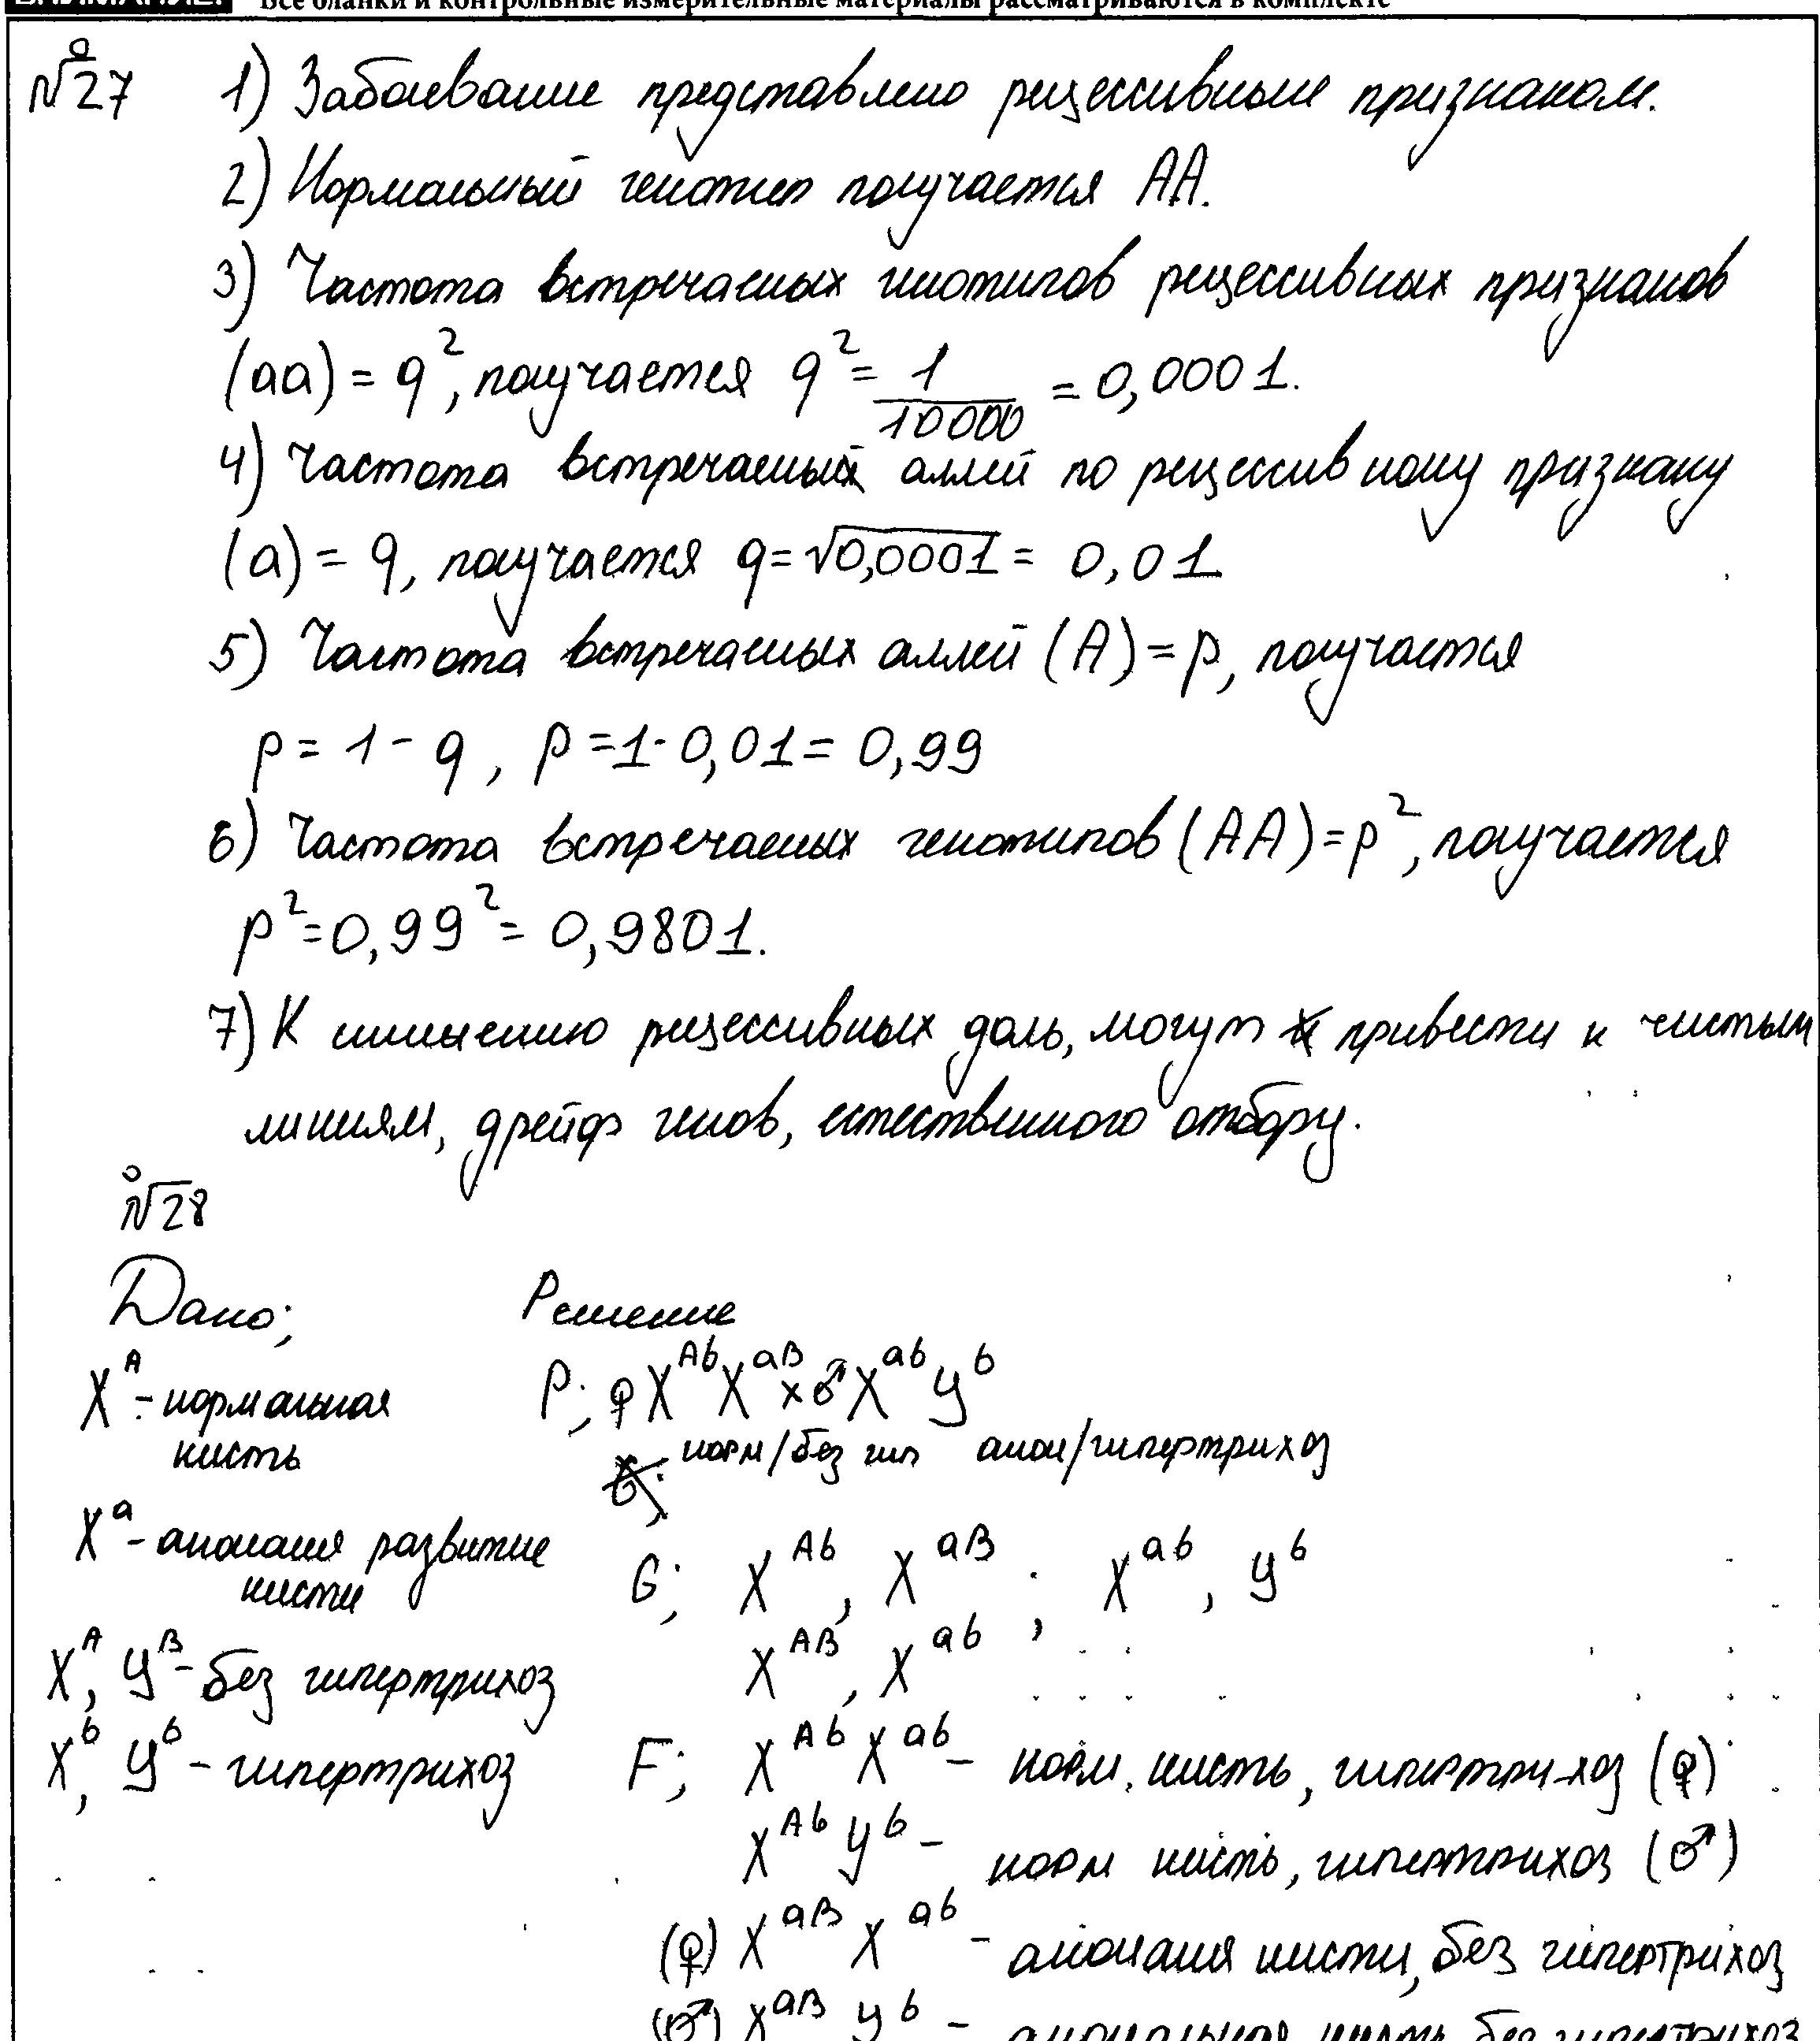 Все бланки и контрольные измерительные материалы рассматриваются в комплекте
№27 1) Забоевание представлено рецессивным признаком.
2) Нормальный генотип получается АА.
3) Частота встречаемых генотипов рецессивных признаков
(aa) = q², получается q² = 1/10000 = 0,0001.
4) Частота встречаемых аллей по рецессивному признаку
(a) = q, получается q = √0,0001 = 0,01
5) Частота встречаемых аллей (A) = p, получается
p = 1 - q, p = 1 - 0,01 = 0,99
6) Частота встречаемых генотипов (AA) = p², получается
p² = 0,99² = 0,9801.
7) К рецессивных даль, могут привести к чистым
линиям, дрейф генов, естественного отбору.
№28
Дано; Решение
X^A - нормальная кисть
P; ♀ X^Ab X^aB x ♂ X^ab У^b
норм/без гип аном/гипертрихоз
X^a - аномалия развитие кисти
G; X^Ab, X^aB ; X^ab, У^b
X^AB, X^ab
X^A, У^B - без гипертрихоз
X^b, У^b - гипертрихоз
F; X^Ab X^ab - норм. кисть, гипертрихоз (♀)
X^Ab У^b - норм кисть, гипертрихоз (♂)
(♀) X^aB X^ab - аномалия кисти, без гипертрихоз
(♂) X^aB У^b - аномальная кисть без гипертрихоз